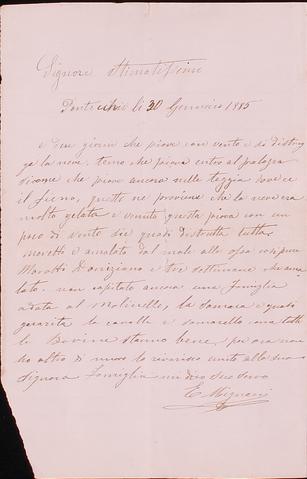 Signore Stimatissimo
Pontecchio li 30 Gennaio 1885
e due giorni che piove con vento e si distrug
ge la neve, temo che piova entro al palazzo
sicome che piove ancora nella teggia dove ce
il fieno, questo ne proviene che la neve era
molto gelata e venuta questa piova con un
poco di vento si e quasi distrutta tutta,
Moretti e amalato dal male alle ossa
Moratti Donziano e tre settimane che ama
lato, non capitato ancora una famiglia
adata al Molinello, la somara e quasi
guarita la cavalla e somarello con tutte
le Bovine stanno bene, per ora non
ho altro di nuovo la riverisco unito alla sua
Signora Famiglia mi dico suo servo
E Mignani